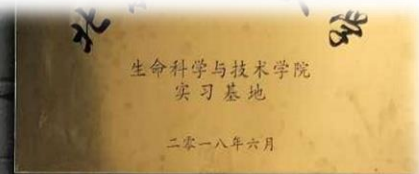 北
生命科学与技术学院
实习基地
二零一八年六月